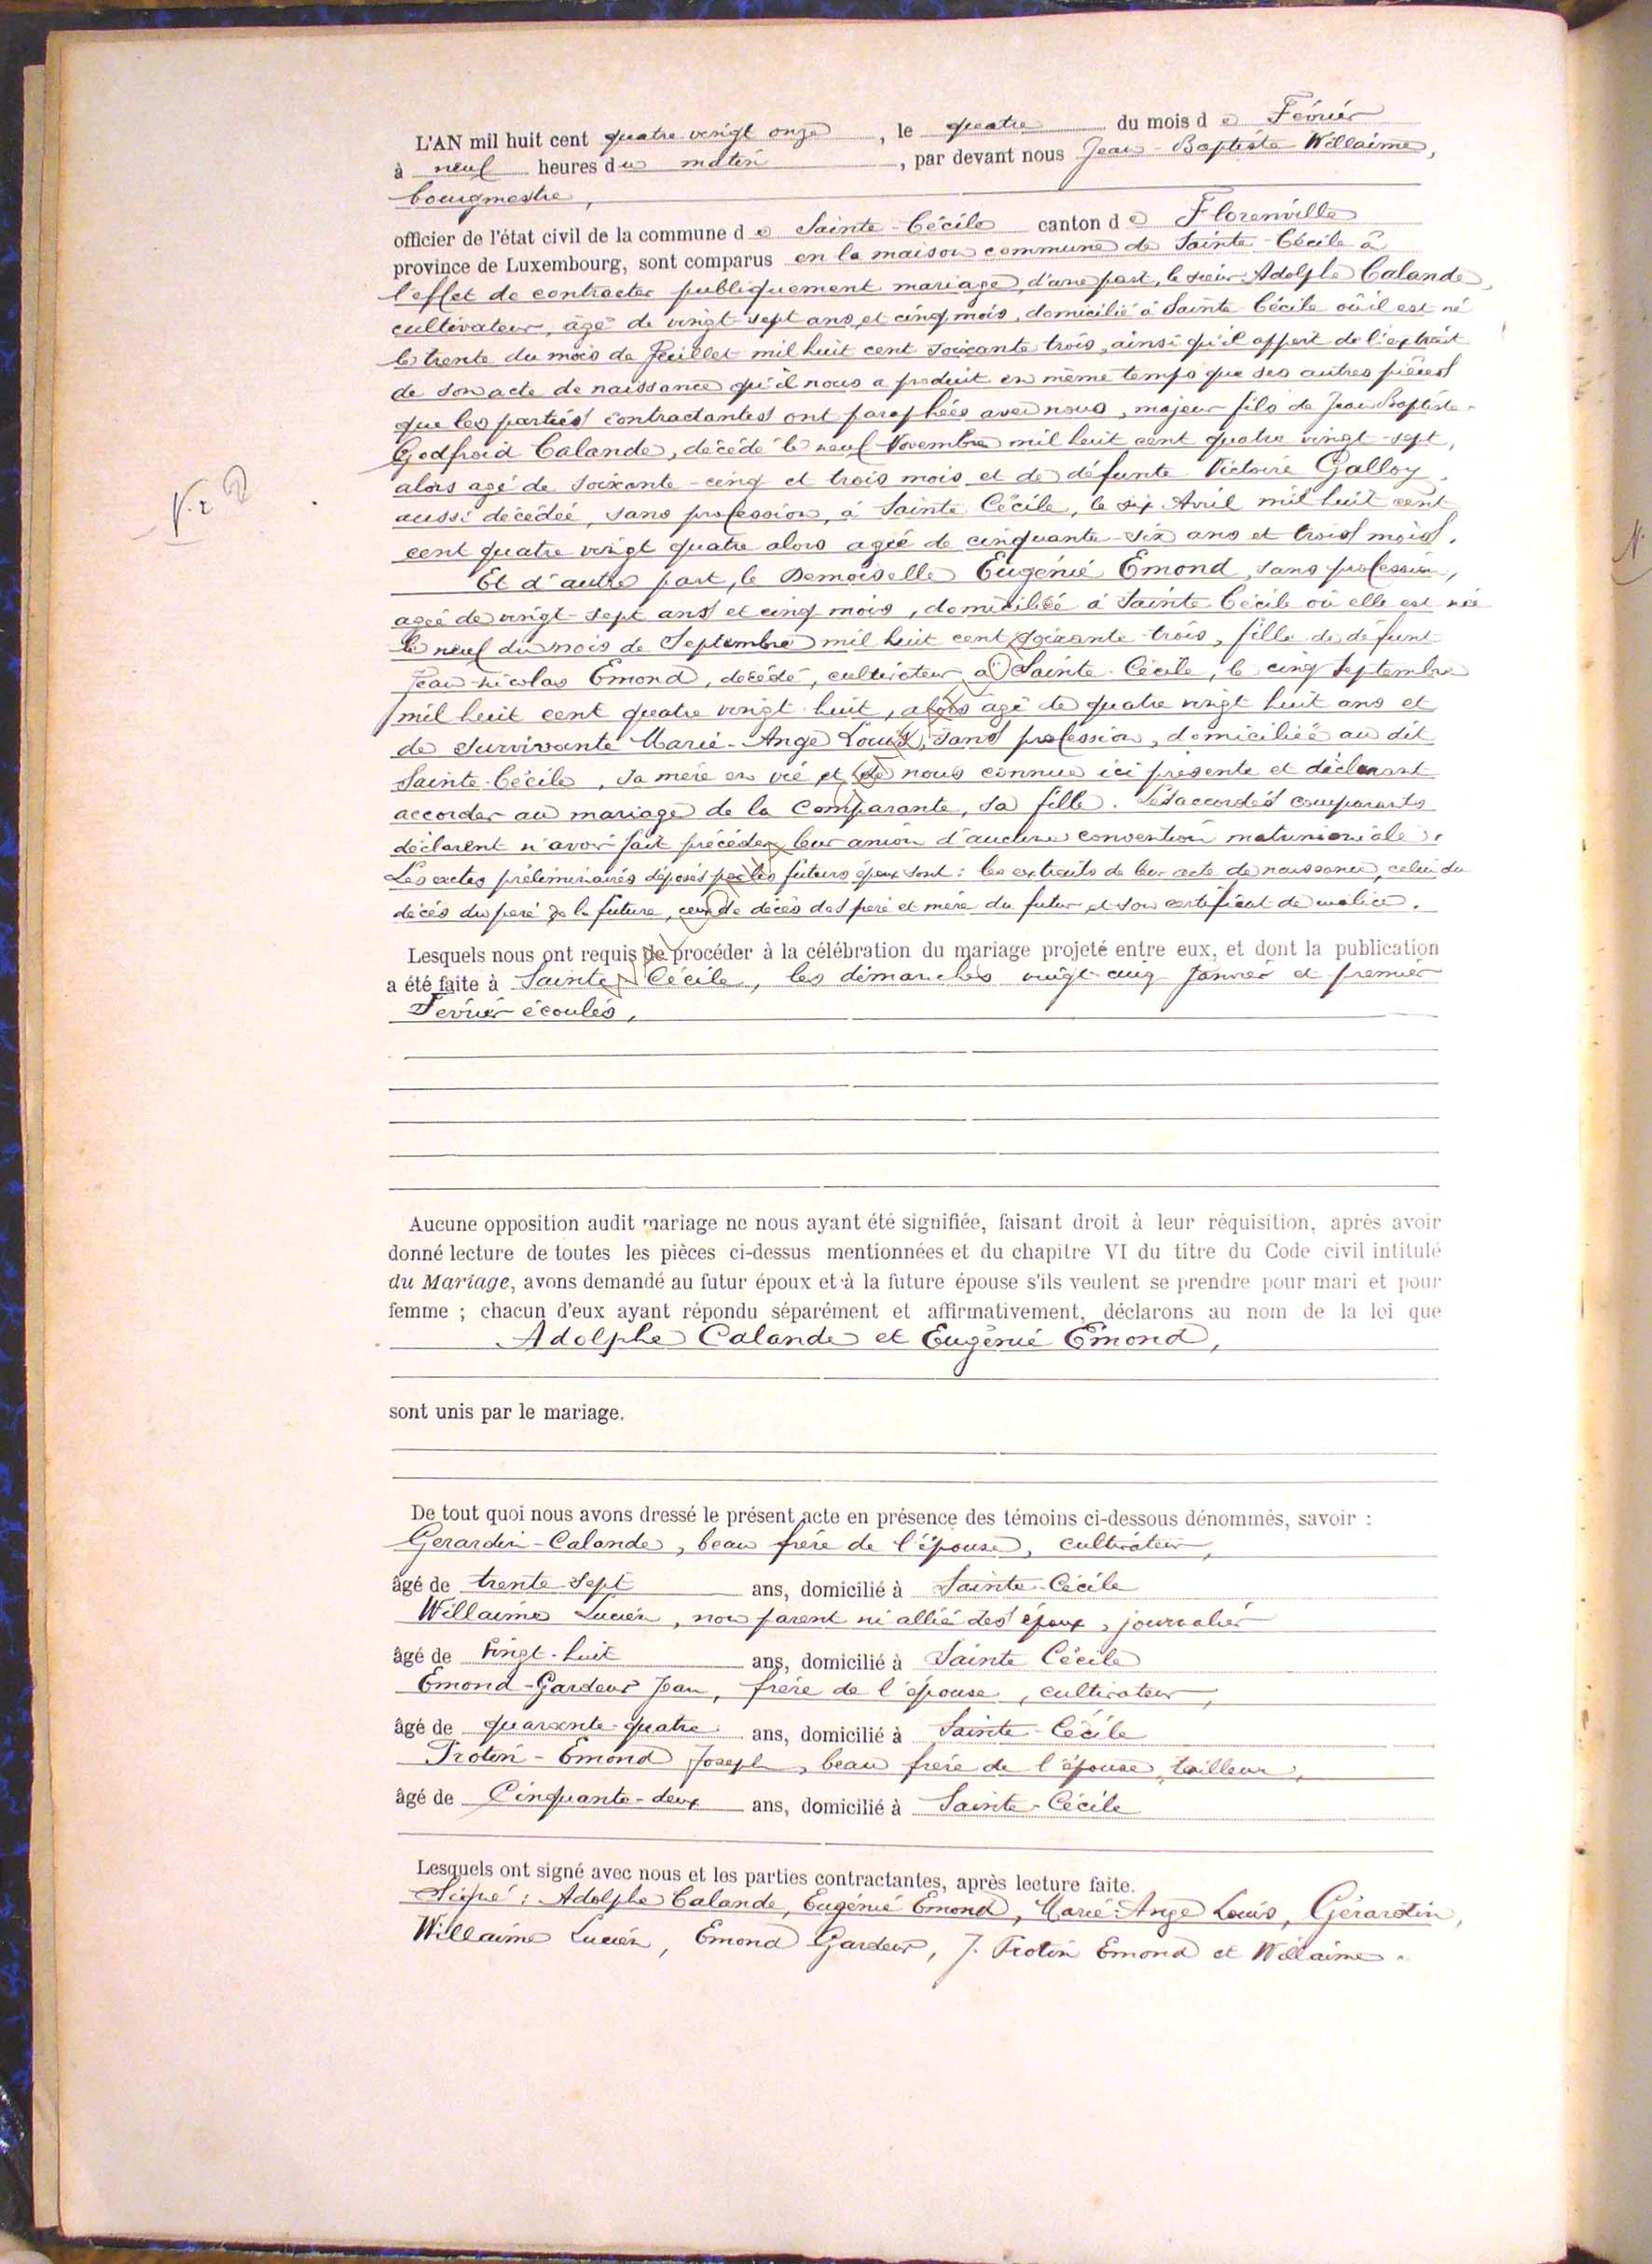 L'AN mil huit cent quatre vingt onze, le quatre du mois de Février
à neuf heures du matin, par devant nous Jean-Baptiste Willaime,
bourgmestre,
officier de l'état civil de la commune de Sainte-Cécile canton de Florenville
province de Luxembourg, sont comparus en la maison commune de Sainte-Cécile à
l'effet de contracter publiquement mariage, d'une part, le sieur Adolphe Calande,
cultivateur, âgé de vingt-sept ans et cinq mois, domicilié à Sainte Cécile où il est né
le trente du mois de Juillet mil huit cent soixante trois, ainsi qu'il appert de l'extrait
de son acte de naissance qu'il nous a produit en même temps que ses autres pièces
que les parties contractantes ont paraphées avec nous, majeur fils de Jean Baptiste-
Godfroid Calande, décédé le neuf Novembre mil huit cent quatre vingt-sept,
alors agé de soixante-cinq et trois mois et de défunte Victoire Galloy,
N.º 2
aussi décédée, sans profession, à Sainte Cécile, le six Avril mil huit cent
cent quatre vingt quatre alors agée de cinquante-six ans et trois mois.
Et d'autre part, le Demoiselle Eugénie Emond, sans profession,
agée de vingt-sept ans et cinq mois, domiciliée à Sainte Cécile où elle est née
le neuf du mois de Septembre mil huit cent soixante-trois, fille de défunt
Jean-Nicolas Emond, décédé, cultivateur à Sainte-Cécile, le cinq Septembre
mil huit cent quatre vingt-huit, alors âgé de quatre vingt huit ans et
de survivante Marie-Ange Louis, sans profession, domiciliée au dit
Sainte-Cécile, sa mère en vie et de nous connue ici présente et déclarant
accorder au mariage de la comparante, sa fille. Les accordés comparants
déclarent n'avoir fait précéder leur union d'aucune convention matrimoniale.
Les actes préliminaires déposés par les futurs époux sont: les extraits de leur acte de naissance, celui du
décès du père de la future, ceux de décès des père et mère du futur et son certificat de milice.
Lesquels nous ont requis de procéder à la célébration du mariage projeté entre eux, et dont la publication
a été faite à Sainte Cécile, les dimanches vingt-cinq Janvier et premier
Février écoulés,
Aucune opposition audit mariage ne nous ayant été signifiée, faisant droit à leur réquisition, après avoir
donné lecture de toutes les pièces ci-dessus mentionnées et du chapitre VI du titre du Code civil intitulé
du Mariage, avons demandé au futur époux et à la future épouse s'ils veulent se prendre pour mari et pour
femme ; chacun d'eux ayant répondu séparément et affirmativement, déclarons au nom de la loi que
Adolphe Calande et Eugénie Emond,
sont unis par le mariage.
De tout quoi nous avons dressé le présent acte en présence des témoins ci-dessous dénommés, savoir :
Gerardin-Calande, beau frère de l'épouse, cultivateur,
âgé de trente-sept ans, domicilié à Sainte-Cécile
Willaime Lucien, non parent ni allié des époux, journalier
âgé de vingt-huit ans, domicilié à Sainte Cécile
Emond-Gardeur Jean, frère de l'épouse, cultivateur,
âgé de quarante-quatre ans, domicilié à Sainte-Cécile
Trotin-Emond Joseph, beau frère de l'épouse, tailleur,
âgé de Cinquante-deux ans, domicilié à Sainte-Cécile
Lesquels ont signé avec nous et les parties contractantes, après lecture faite.
Signé: Adolphe Calande, Eugénie Emond, Marie-Ange Louis, Gérardin,
Willaime Lucien, Emond Gardeur, J. Trotin Emond et Willaime.